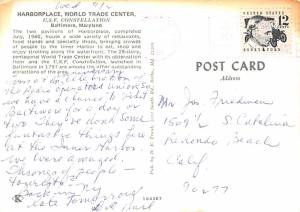 Wed
HARBORPLACE, WORLD TRADE CENTER,
U.S.F. CONSTELLATION
Baltimore, Maryland
The two pavilions of Harborplace, completed
July, 1980, house a wide variety of restaurants,
food stands and specialty shops, bringing crowds
of people to the Inner Harbor to eat, shop and
enjoy strolling along the waterfront. The 28-story,
pentagonal World Trade Center with its observation
floor and the U.S.F. Constellation, launched in
Baltimore in 1797 are among the other outstanding
attractions of the area.
anniversary
celebration of the
Operators Union. So
we have a
Baltimore for a day or
two. They've done some
fantastic things
at the Inner Harbor.
We were amazed.
Throngs of people —
Tourists
Back in NY
late Tomorrow
POST CARD
Address
Mr Don Friedman
1509 1/2 S Catalina
Redondo Beach
Calif.
90277
12
CENTS
HENRY FORD